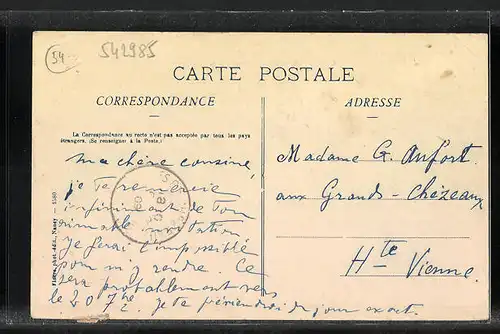 54
542985
CARTE POSTALE
CORRESPONDANCE
ADRESSE
La Correspondance au recto n'est pas acceptée par tous les pays
étrangers. (Se renseigner à la Poste.)
ma chère cousine,
je te remercie
infiniment de ton
aimable invitation
je ferai l'impossible
pour m'y rendre. Ce
sera probablement vers
le 20 7bre je te préviendrai du jour exact.
Madame G. Anfort
aux Grands-Chézeaux
Hte Vienne
phot.-édit., Nancy